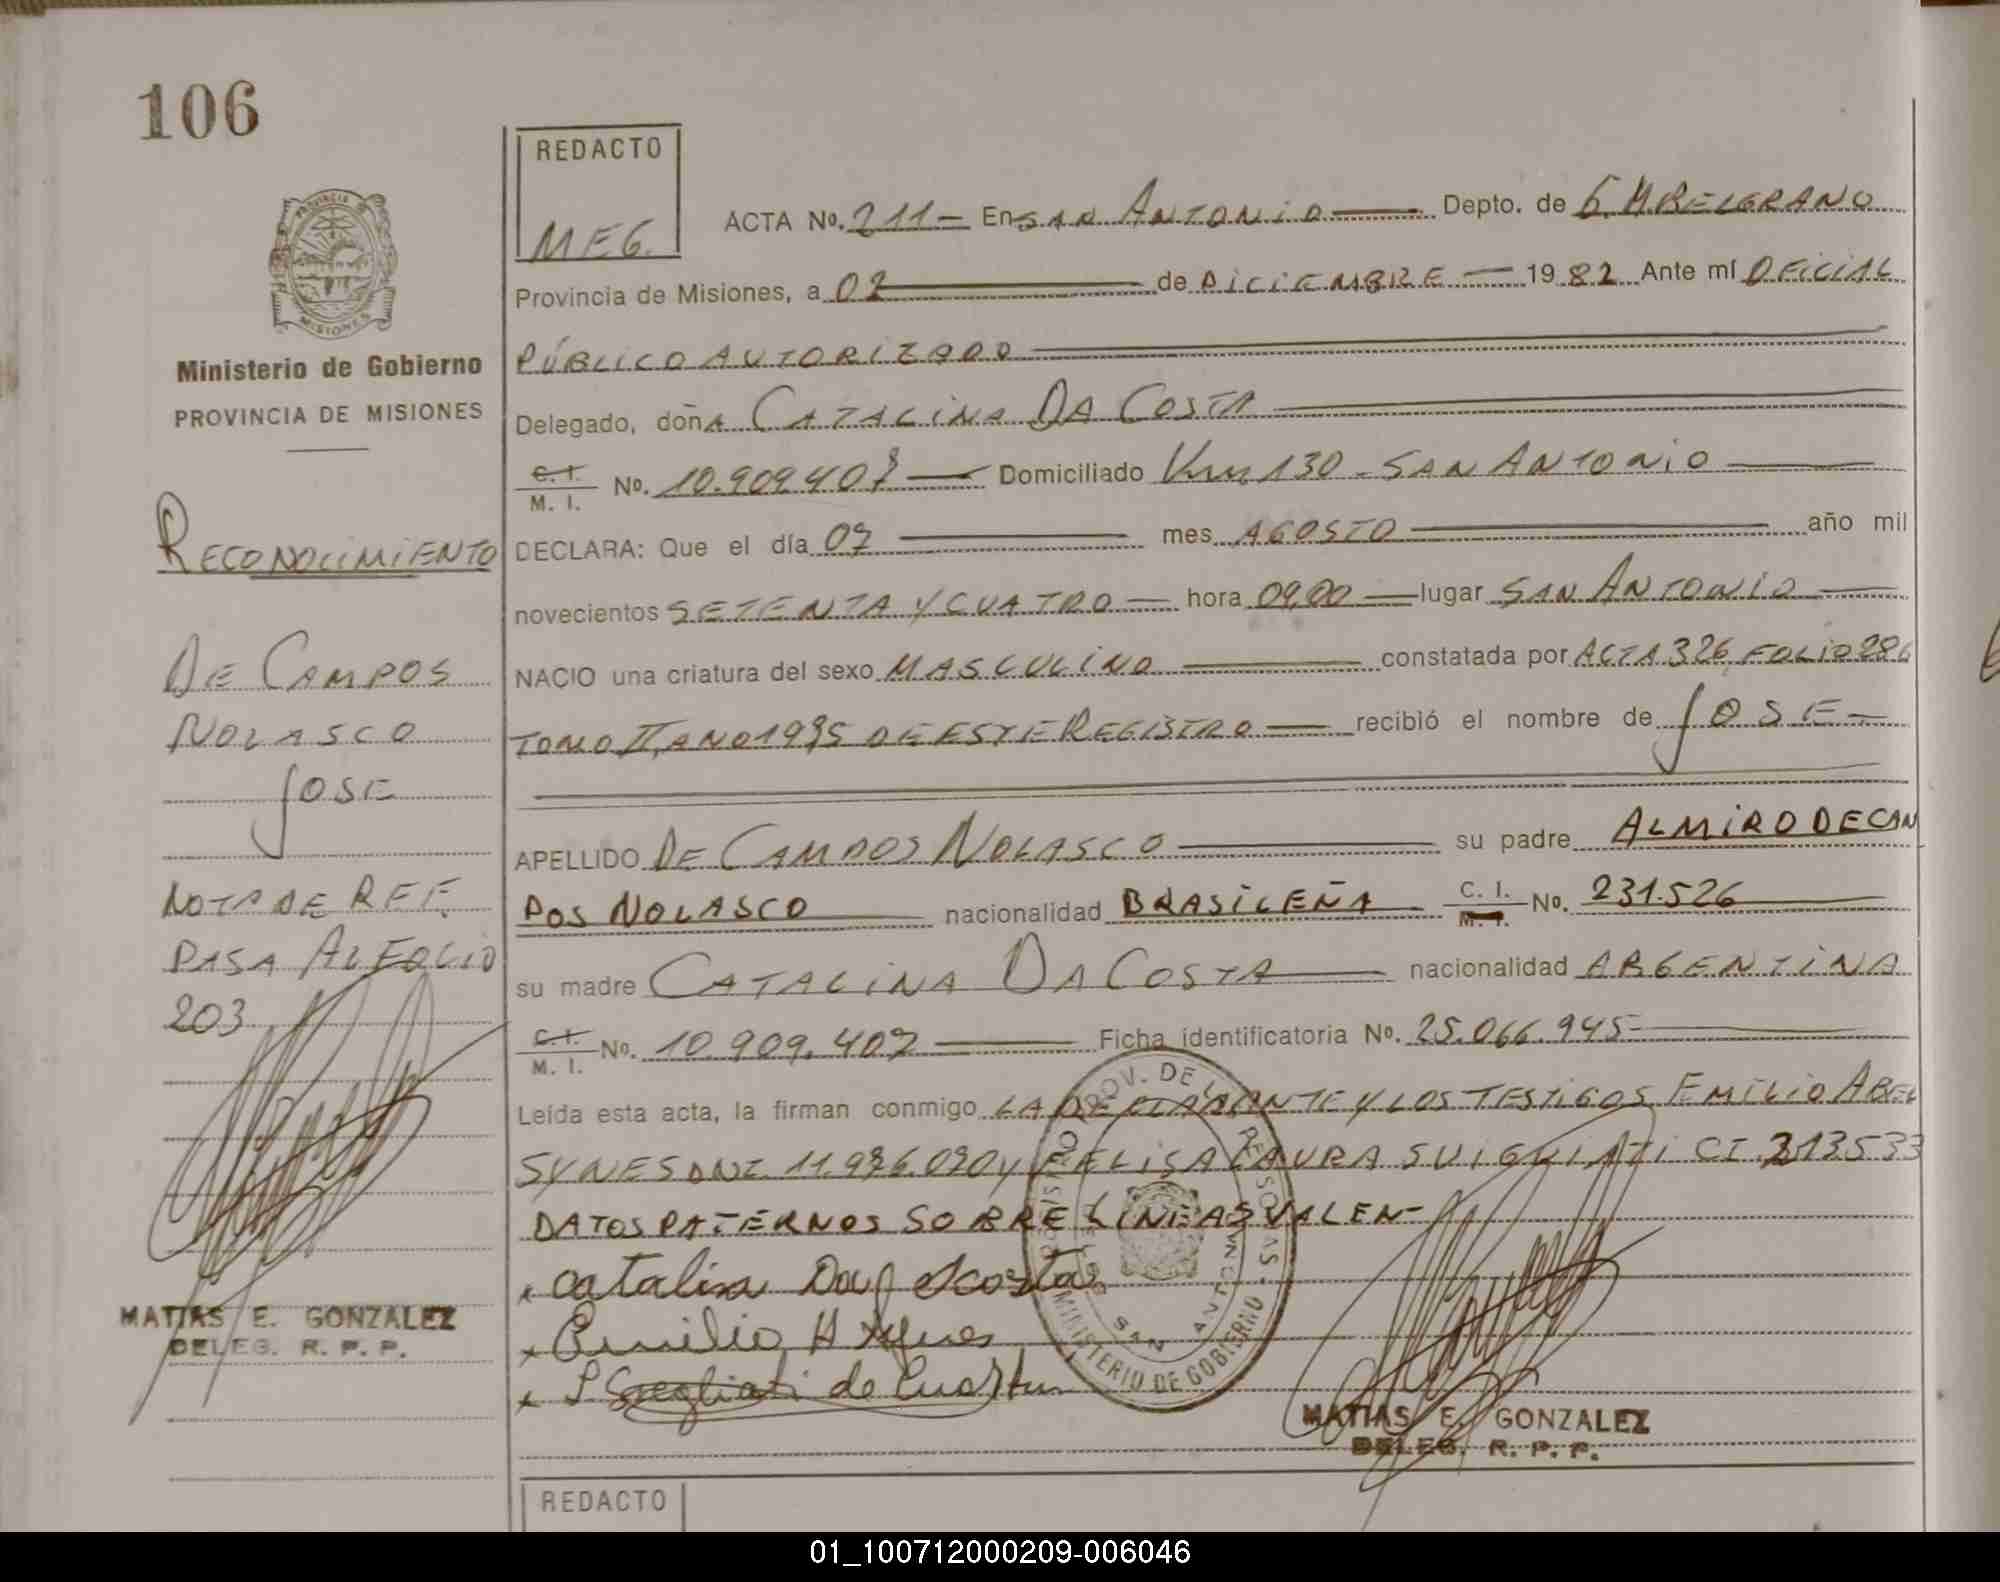 106
REDACTO
MEG.
PROVINCIA DE
MISIONES
Ministerio de Gobierno
PROVINCIA DE MISIONES
RECONOCIMIENTO
DE CAMPOS
NOLASCO
JOSE
NOTA DE REF.
PASA AL FOLIO
203
MATIAS E. GONZALEZ
DELEG. R. P. P.
ACTA No. 211 - En SAN ANTONIO Depto. de G. M BELGRANO
Provincia de Misiones, a 02 de DICIEMBRE 1982 Ante mí OFICIAL
PÚBLICO AUTORIZADO
Delegado, doñA CATALINA DA COSTA
C. I. M. I. No. 10.909.407 Domiciliado Km 130 - SAN ANTONIO
DECLARA: Que el día 07 mes AGOSTO año mil
novecientos SETENTA Y CUATRO hora 09,00 lugar SAN ANTONIO
NACIO una criatura del sexo MASCULINO constatada por ACTA 326, FOLIO 286
TOMO II, AÑO 1975 DE ESTE REGISTRO recibió el nombre de JOSE
APELLIDO DE CAMPOS NOLASCO su padre ALMIRO DE CAM
POS NOLASCO nacionalidad BRASILEÑA C. I. M. I. No. 231.526
su madre CATALINA DA COSTA nacionalidad ARGENTINA
C. I. M. I. No. 10.909.407 Ficha identificatoria No. 25.066.945
Leída esta acta, la firman conmigo LA DECLARANTE Y LOS TESTIGOS EMILIO ABEL
SYNES DNI. 11.976.090 y FELISA LAURA SUIGLIATI CI 313533
DATOS PATERNOS SOBRE LINEAS VALEN-
x catalina Da costa
x Emilio A Synes
x de
PROV. DE PERSONAS. SAN ANTONIO MINISTERIO DE GOBIERNO
MATIAS E. GONZALEZ
DELEG. R. P. P.
REDACTO
01_100712000209-006046